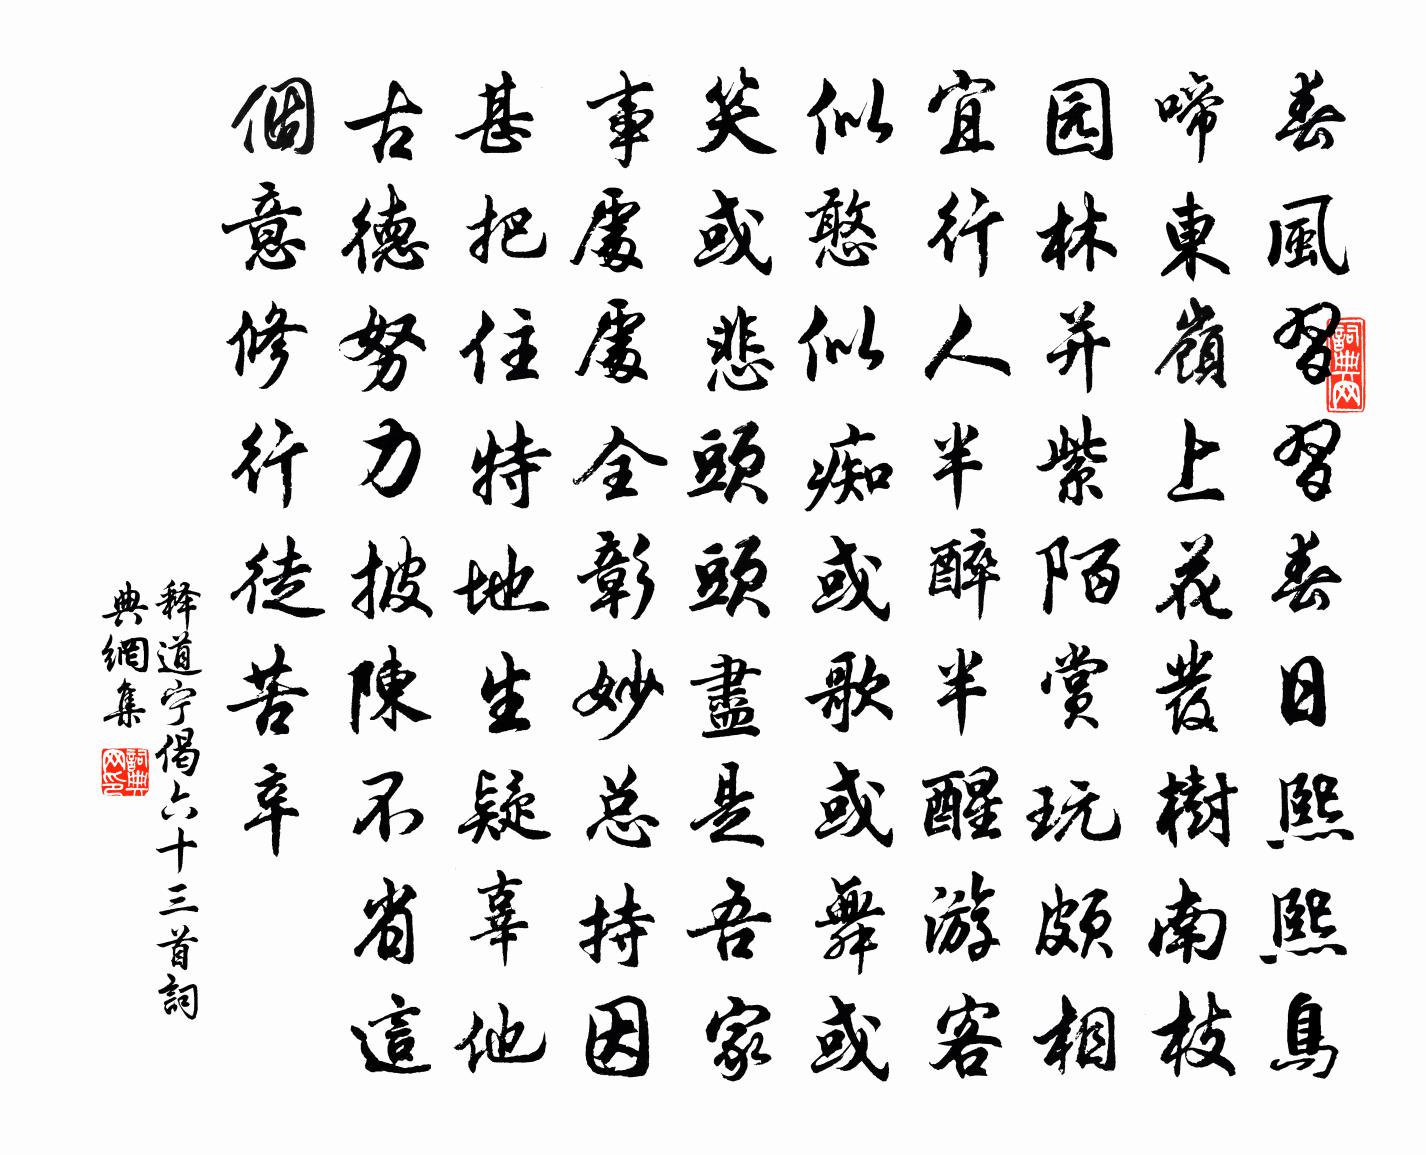 春風習習春日熙熙鳥
啼東嶺上花發樹南枝
园林并紫陌賞玩頗相
宜行人半醉半醒游客
似憨似痴或歌或舞或
笑或悲頭頭盡是吾家
事處處全彰妙总持因
甚把住特地生疑辜他
古德努力披陳不省這
個意修行徒苦辛
释道宁偈六十三首詞
典網集
詞典网
詞典网印